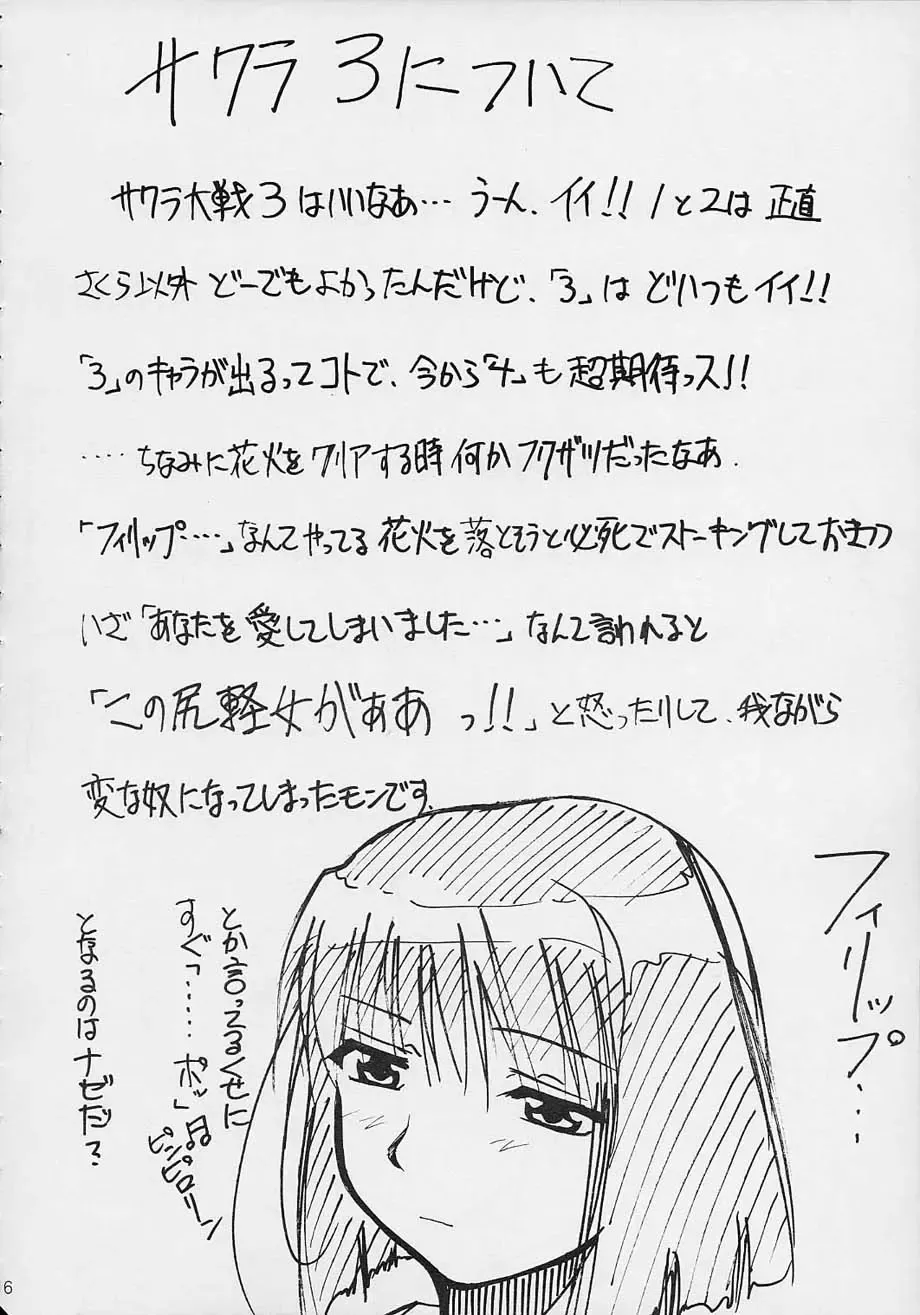 サクラ3について
サクラ大戦3はいいなあ…うーん、イイ!!1と2は正直
さくら以外どーでもよかったんだけど、「3」はどいつもイイ!!
「3」のキャラが出るってコトで、今から「4」も超期待っス!!
‥‥ちなみに花火をクリアする時何かフクザツだったなあ.
「フィリップ‥…」なんてやってる花火を落とそうと必死でストーキングしておきつつ
いざ「あなたを愛してしまいました…」なんて言われると
「この尻軽女がぁああっ!!」と怒ったりして、我ながら
変な奴になってしまったモンです.
フィリップ…
とか言ってるくせに
すぐ「……ポッ」♫
ピンピロリーン
となるのはナゼだ?
6